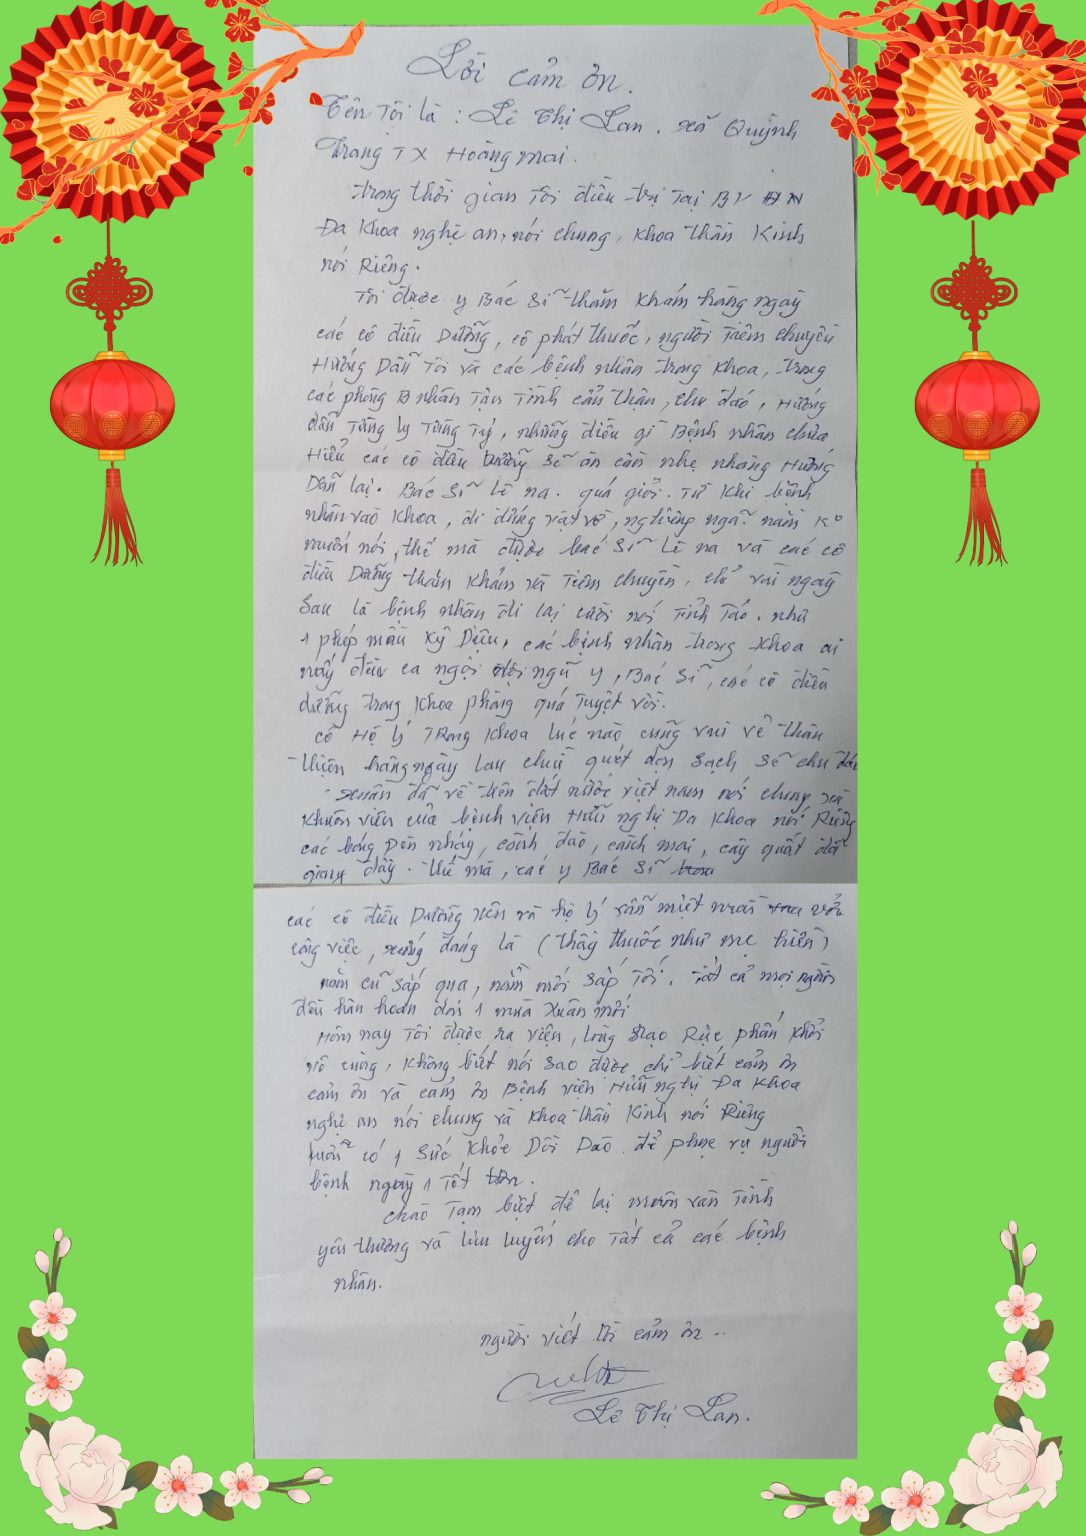 Lời cảm ơn.
Tên tôi là : Lê Thị Lan. xã Quỳnh
Trang TX Hoàng mai.
trong thời gian tôi điều trị tại BV HN
Đa Khoa nghệ an, nói chung, khoa thần Kinh
nói Riêng.
Tôi được y Bác Sĩ thăm khám hàng ngày
các cô điều Dưỡng, cô phát thuốc, người tiêm chuyền
Hướng Dẫn tôi và các bệnh nhân trong khoa, trong
các phòng B nhân tận tình cẩn thận, chu đáo, Hướng
dẫn từng ly từng tý, những điều gì Bệnh nhân chưa
Hiểu các cô điều dưỡng sẽ ân cần nhẹ nhàng Hướng
Dẫn lại. Bác Sĩ Lê na. quá giỏi. Từ khi bệnh
nhân vào khoa, đi đứng vật vờ, nghiêng ngã nằm ko
muốn nói, thế mà được bác Sĩ Lê na và các cô
điều Dưỡng thăm khám và tiêm chuyền, chỉ vài ngày
Sau là bệnh nhân đi lại cười nói tỉnh táo. như
1 phép mầu kỳ Diệu, các bệnh nhân trong khoa ai
nấy đều ca ngợi đội ngũ y, Bác Sĩ, các cô điều
dưỡng trong khoa phòng quá tuyệt vời.
cô Hộ lý TRong khoa lúc nào cũng vui vẻ thân
thiện hàng ngày lau chùi quét dọn Sạch Sẽ chu đáo
xuân đã về trên đất nước việt nam nói chung và
khuôn viên của bệnh viện Hữu nghị Đa khoa nói Riêng
các bóng Đèn nháy, cành đào, cành mai, cây quất đã
giăng đầy. thế mà, các y Bác Sĩ
các cô điều Dưỡng viên và hộ lý vẫn miệt mài với
công việc, xứng đáng là (thầy thuốc như mẹ hiền)
năm cũ sắp qua, năm mới Sắp tới. tất cả mọi người
đều hân hoan đón 1 mùa Xuân mới
Hôm nay tôi được ra viện, lòng Rạo Rực phấn khởi
vô cùng, không biết nói sao được chỉ biết cảm ơn
cảm ơn và cảm ơn Bệnh viện Hữu nghị Đa khoa
nghệ an nói chung và khoa thần Kinh nói Riêng
luôn có 1 Sức khỏe Dồi Dào để phục vụ người
bệnh ngày 1 tốt hơn.
chào tạm biệt để lại muôn vàn tình
yêu thương và lưu luyến cho tất cả các bệnh
nhân.
người viết lời cảm ơn..
Lê Thị Lan.